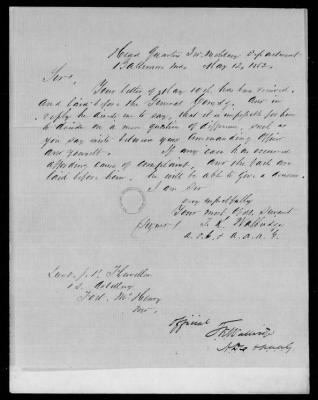 Head Quarters Military Department
Baltimore Md. May 12, 1862
Sir,
Your letter of May 10th has been received
and laid before the General Comdg. and in
reply he directs me to say, that it is impossible for him
to decide on a mere question of difference, such as
you say exists between your Commanding Officer
and yourself.
If any case has occurred
affording cause of complaint, and the facts are
laid before him, he will be able to give a decision.
I am Sir
very respectfully
Your most Obdt. Servant
(Signed)
A.D.C. & A.A.A.G.
Lieut. J. P.
Artillery
Fort McHenry
Md.
Official